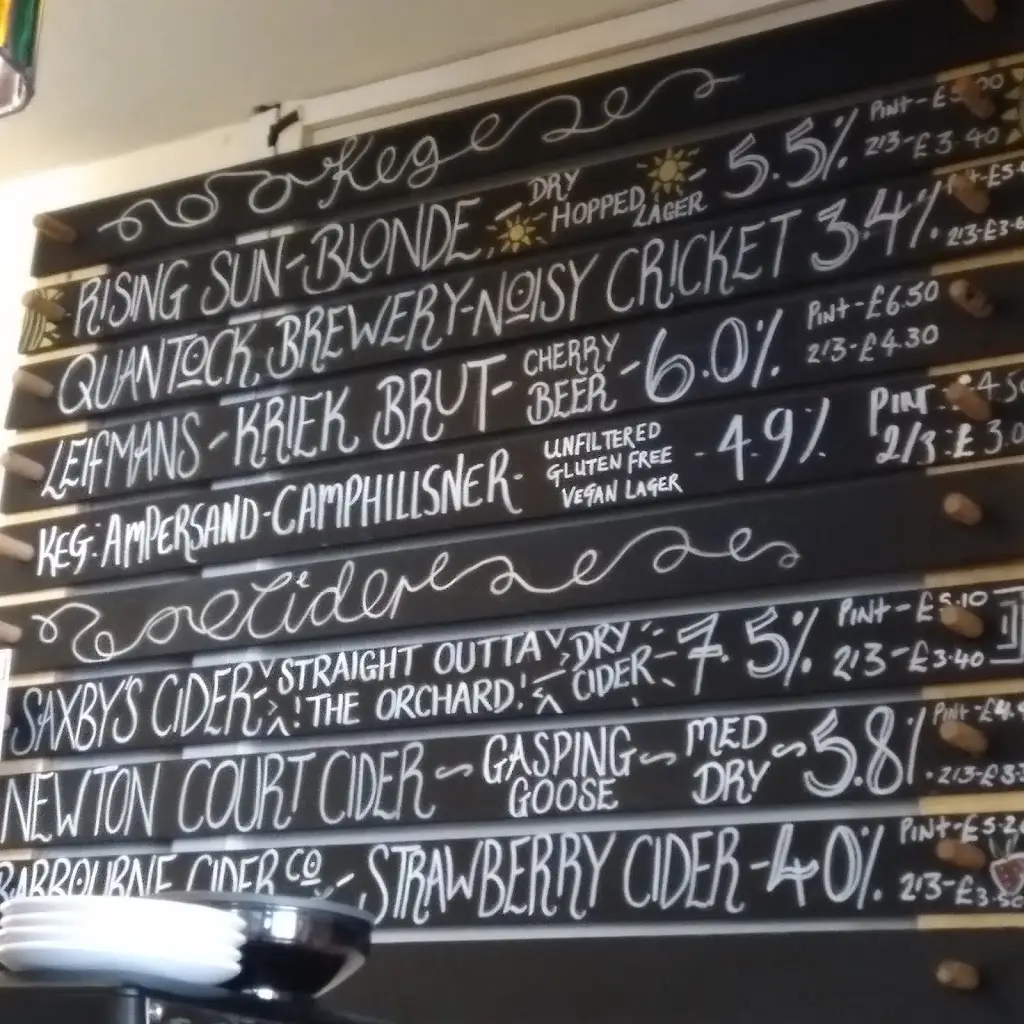 Kegs
RISING SUN-BLONDE, DRY HOPPED LAGER 5.5%
PINT-£5.00
2/3-£3.40
QUANTOCK BREWERY-NOISY CRICKET 3.4%
2/3-£3.
LEIFMANS-KRIEK BRUT- CHERRY BEER -6.0%
PINT-£6.50
2/3-£4.30
KEG: AMPERSAND-CAMPHILLSNER-
UNFILTERED
GLUTEN FREE
VEGAN LAGER
- 4.9%
PINT:
2/3:£3.0
Ciders
SAXBY'S CIDER STRAIGHT OUTTA
THE ORCHARD!
DRY
CIDER
7.5%
PINT-£5.10
2/3-£3.40
NEWTON COURT CIDER ~ GASPING GOOSE ~ MED DRY ~ 5.8%
PINT-
2/3-
BARBOURNE CIDER CO - STRAWBERRY CIDER -4.0%
PINT-£5.20
2/3-£3.50